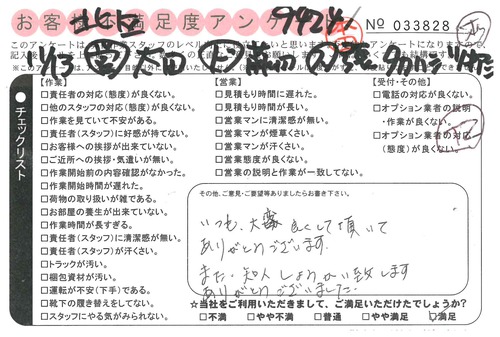 お客様満足度アンケ
No 033828
【作業】
□責任者の対応(態度)が良くない。
□他のスタッフの対応(態度)が良くない。
□作業を見ていて不安がある。
□責任者(スタッフ)に好感が持てない。
□お客様への挨拶が出来ていない。
□ご近所への挨拶・気遣いが無い。
□作業開始前の内容確認がなかった。
□作業開始時間が遅れた。
□荷物の取り扱いが雑である。
□お部屋の養生が出来ていない。
□作業時間が長すぎる。
□責任者(スタッフ)に清潔感が無い。
□責任者(スタッフ)が汗くさい。
□トラックが汚い。
□梱包資材が汚い。
□運転が不安(下手)である。
□靴下の履き替えをしてない。
□スタッフにやる気がみられない。
【営業】
□見積もり時間に遅れた。
□見積もり時間が長い。
□営業マンに清潔感が無い。
□営業マンが煙草くさい。
□営業マンが汗くさい。
□営業態度が良くない。
□営業の説明と作業が一致してない。
【受付・その他】
□電話の対応が良くない。
□オプション業者の説明
・作業が良くない。
□オプション業者の対応
(態度)が良くない。
チェックリスト
その他、ご意見・ご要望等ありましたらお書き下さい。
いつも、大変良くして頂いて
ありがとうございます。
また、知人しょうかい致します
ありがとうございました。
☆当社をご利用いただきまして、ご満足いただけたでしょうか?
□不満 □やや不満 □普通 □やや満足 □満足